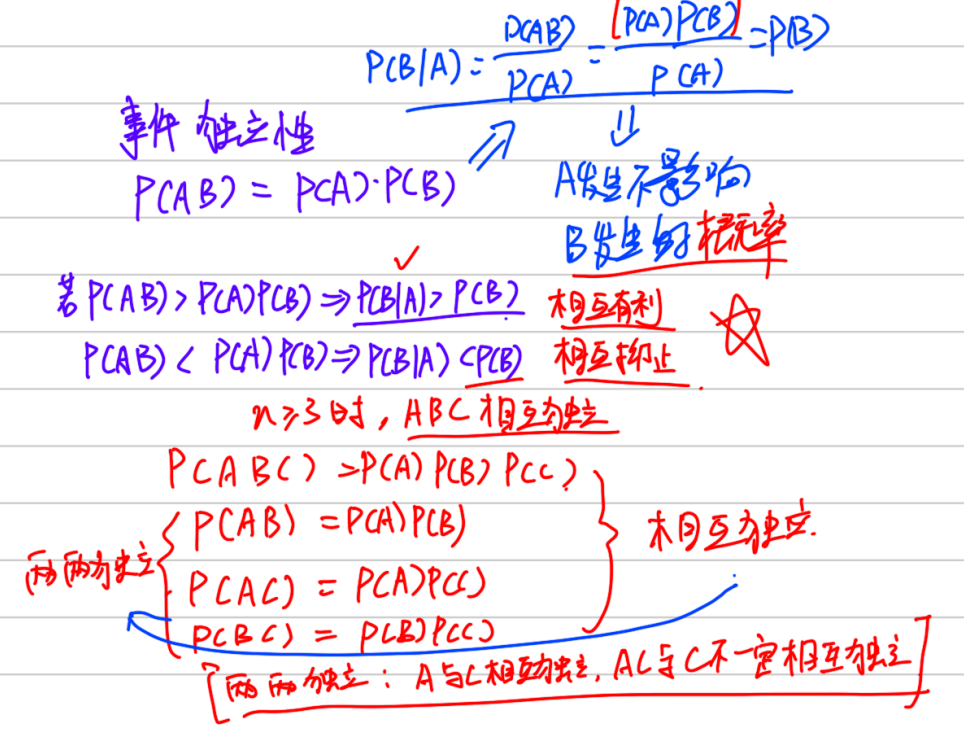 P(B|A) = P(AB)/P(A) = P(A)P(B)/P(A) = P(B)
事件独立性
P(AB) = P(A)·P(B)
⇗
⇓
A发生不影响
B发生的概率
✓
若P(AB)>P(A)P(B)⇒P(B|A)>P(B) 相互有利 ☆
P(AB)<P(A)P(B)⇒P(B|A)<P(B) 相互抑止.
n≥3时, ABC相互独立
P(ABC)=P(A)P(B)P(C)
P(AB)=P(A)P(B)
相互独立.
两两独立
P(AC)=P(A)P(C)
P(BC)=P(B)P(C)
[两两独立: A与C相互独立, AC与C不一定相互独立]